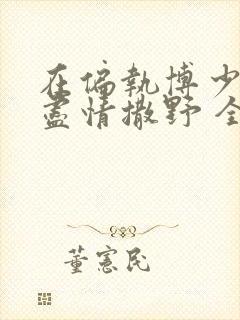 在偏執博少
盡情撒野 全
董憲民